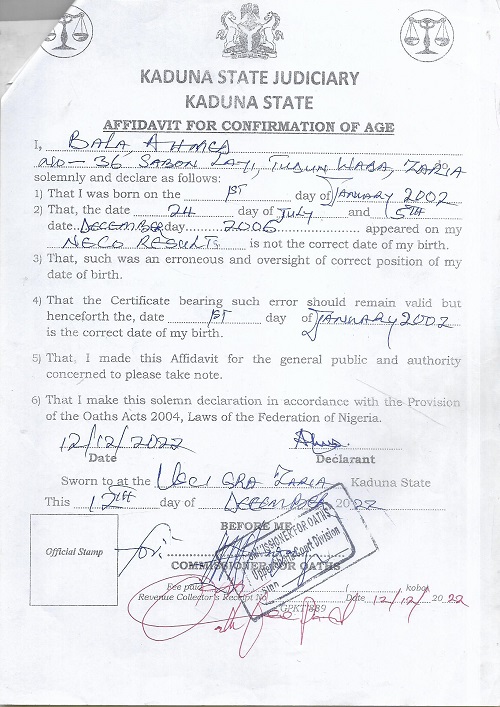 KADUNA STATE JUDICIARY
KADUNA STATE
AFFIDAVIT FOR CONFIRMATION OF AGE
I, BALA AHMED
NO-36 SABON LAYI, TUDUN WADA, ZARIA do
solemnly and declare as follows:
1) That I was born on the 1ST day of JANUARY 2002
2) That, the date 24 day of JULY and 5TH
date DECEMBER day 2006 appeared on my
NECO RESULTS is not the correct date of my birth.
3) That, such was an erroneous and oversight of correct position of my
date of birth.
4) That the Certificate bearing such error should remain valid but
henceforth the, date 1ST day of JANUARY 2002
is the correct date of my birth.
5) That, I made this Affidavit for the general public and authority
concerned to please take note.
6) That I make this solemn declaration in accordance with the Provision
of the Oaths Acts 2004, Laws of the Federation of Nigeria.
12/12/2022
Date Declarant
Sworn to at the UCCI GRA ZARIA Kaduna State
This 12TH day of DECEMBER 2022
BEFORE ME
Official Stamp for:
COMMISSIONER FOR OATHS
COMMISSIONER FOR OATHS
Upper Sharia Court Division
Sign
Fee paid ( kobo)
Revenue Collector's Receipt No Date 12/12/ 2022
GPKT/889